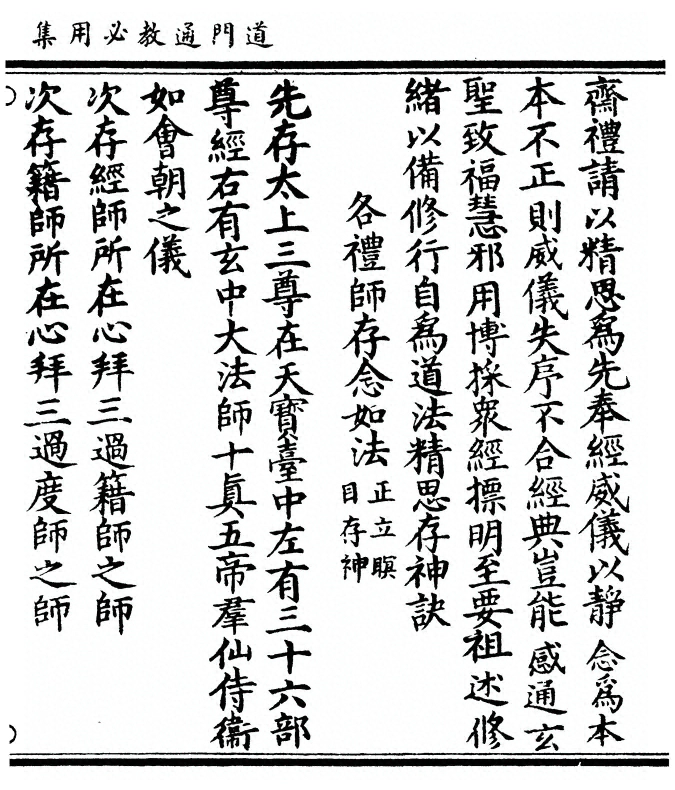 道門通教必用集
齋禮請以精思爲先奉經威儀以靜念爲本
本不正則威儀失序不合經典豈能感通玄
聖致福慧邪用博採衆經摽明至要祖述修
緒以備修行自爲道法精思存神訣
各禮師存念如法正立瞑目存神
先存太上三尊在天寶臺中左有三十六部
尊經右有玄中大法師十眞五帝羣仙侍衞
如會朝之儀
次存經師所在心拜三過籍師之師
次存籍師所在心拜三過度師之師